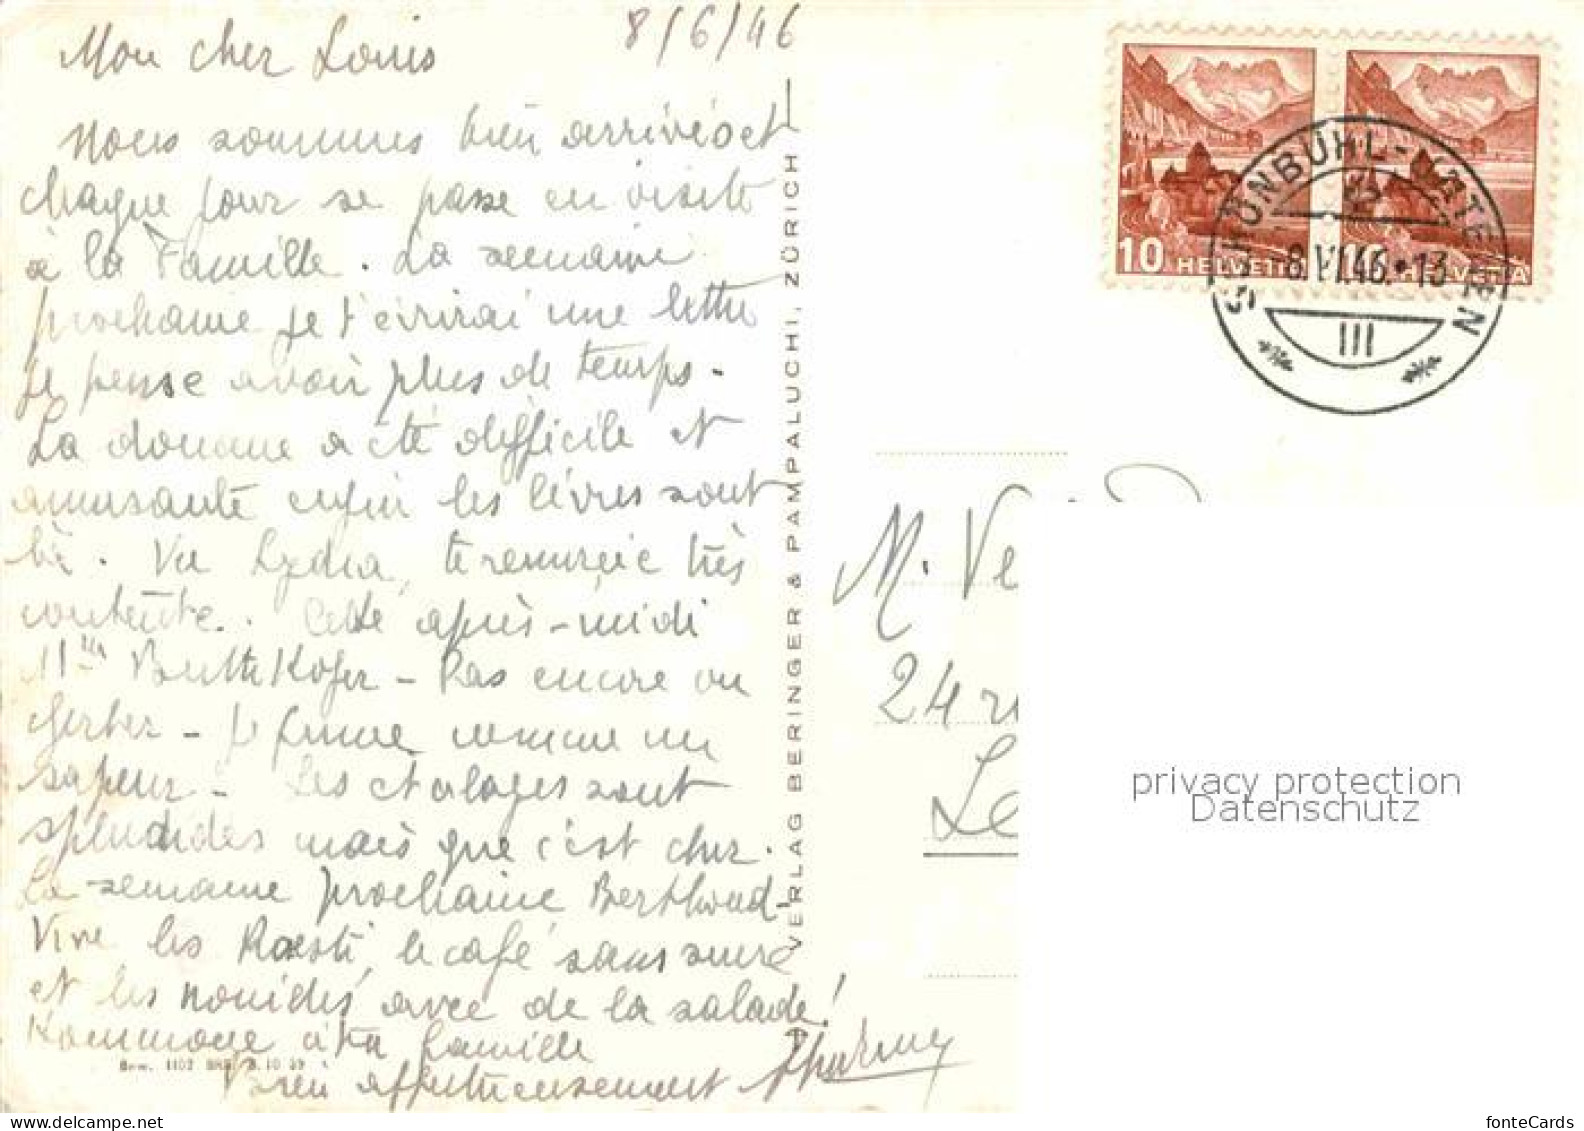 8/6/46
Mon cher Louis
Nous sommes bien arrivés et
chaque jour se passe en visite
à la Famille. La semaine
prochaine je t'écrirai une lettre
je pense avoir plus de temps.
La douane a été difficile et
amusante enfin les livres sont
là. Vu Lydia, te remercie très
contente. Cette après-midi
Kofer - Pas encore vu
Gerber - je fume comme un
sapeur - Les étalages sont
splendides mais que c'est cher.
La semaine prochaine Berthoud
Vive les Roesti, le café sans sucre
et les nouilles avec de la salade!
Hommage à ta famille
Bien affectueusement
VERLAG BERINGER & PAMPALUCHI, ZÜRICH
Bew. 1102 BRB 3.10.39
10 HELVETIA
10 HELVETIA
SCHÖNBÜHL-URTENEN
-8.VI.46.-13
III
M. Ve
24 r
Le
privacy protection
Datenschutz
delcampe.net
fonteCards